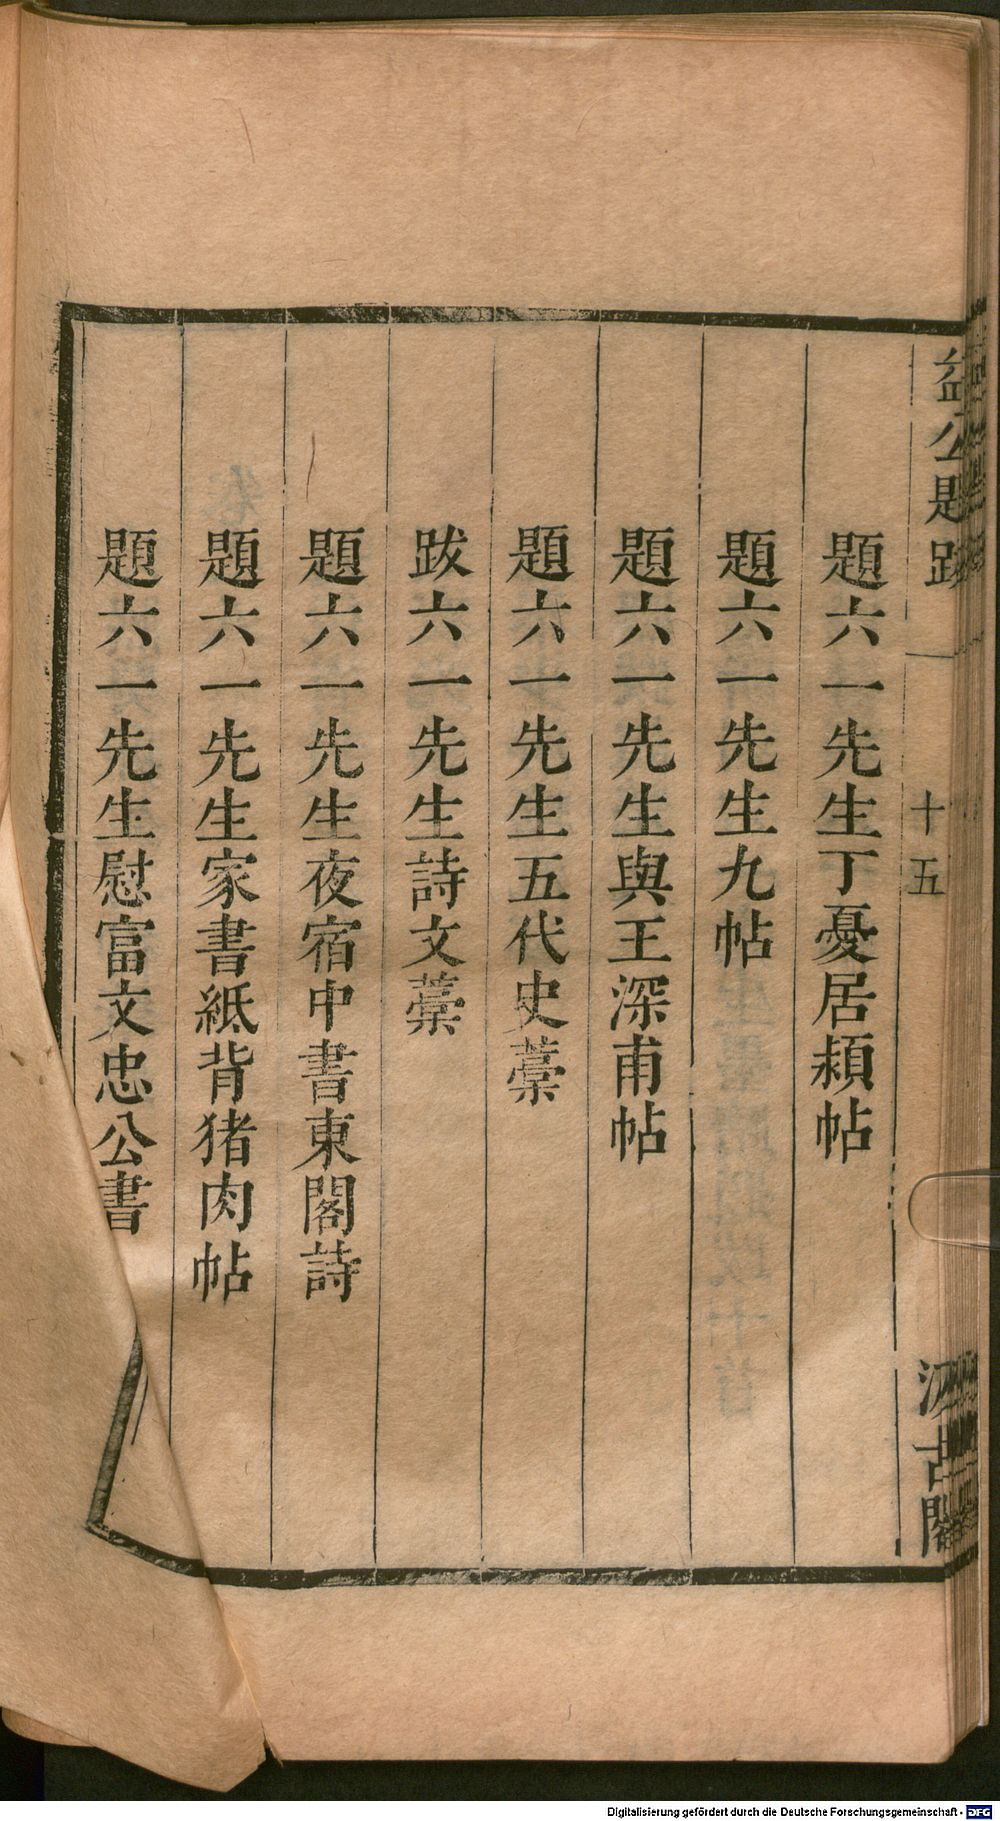 益公題跋
十五
汲古閣
題六一先生丁憂居潁帖
題六一先生九帖
題六一先生與王深甫帖
題六一先生五代史藁
跋六一先生詩文藁
題六一先生夜宿中書東閣詩
題六一先生家書紙背猪肉帖
題六一先生慰富文忠公書
Digitalisierung gefördert durch die Deutsche Forschungsgemeinschaft - DFG